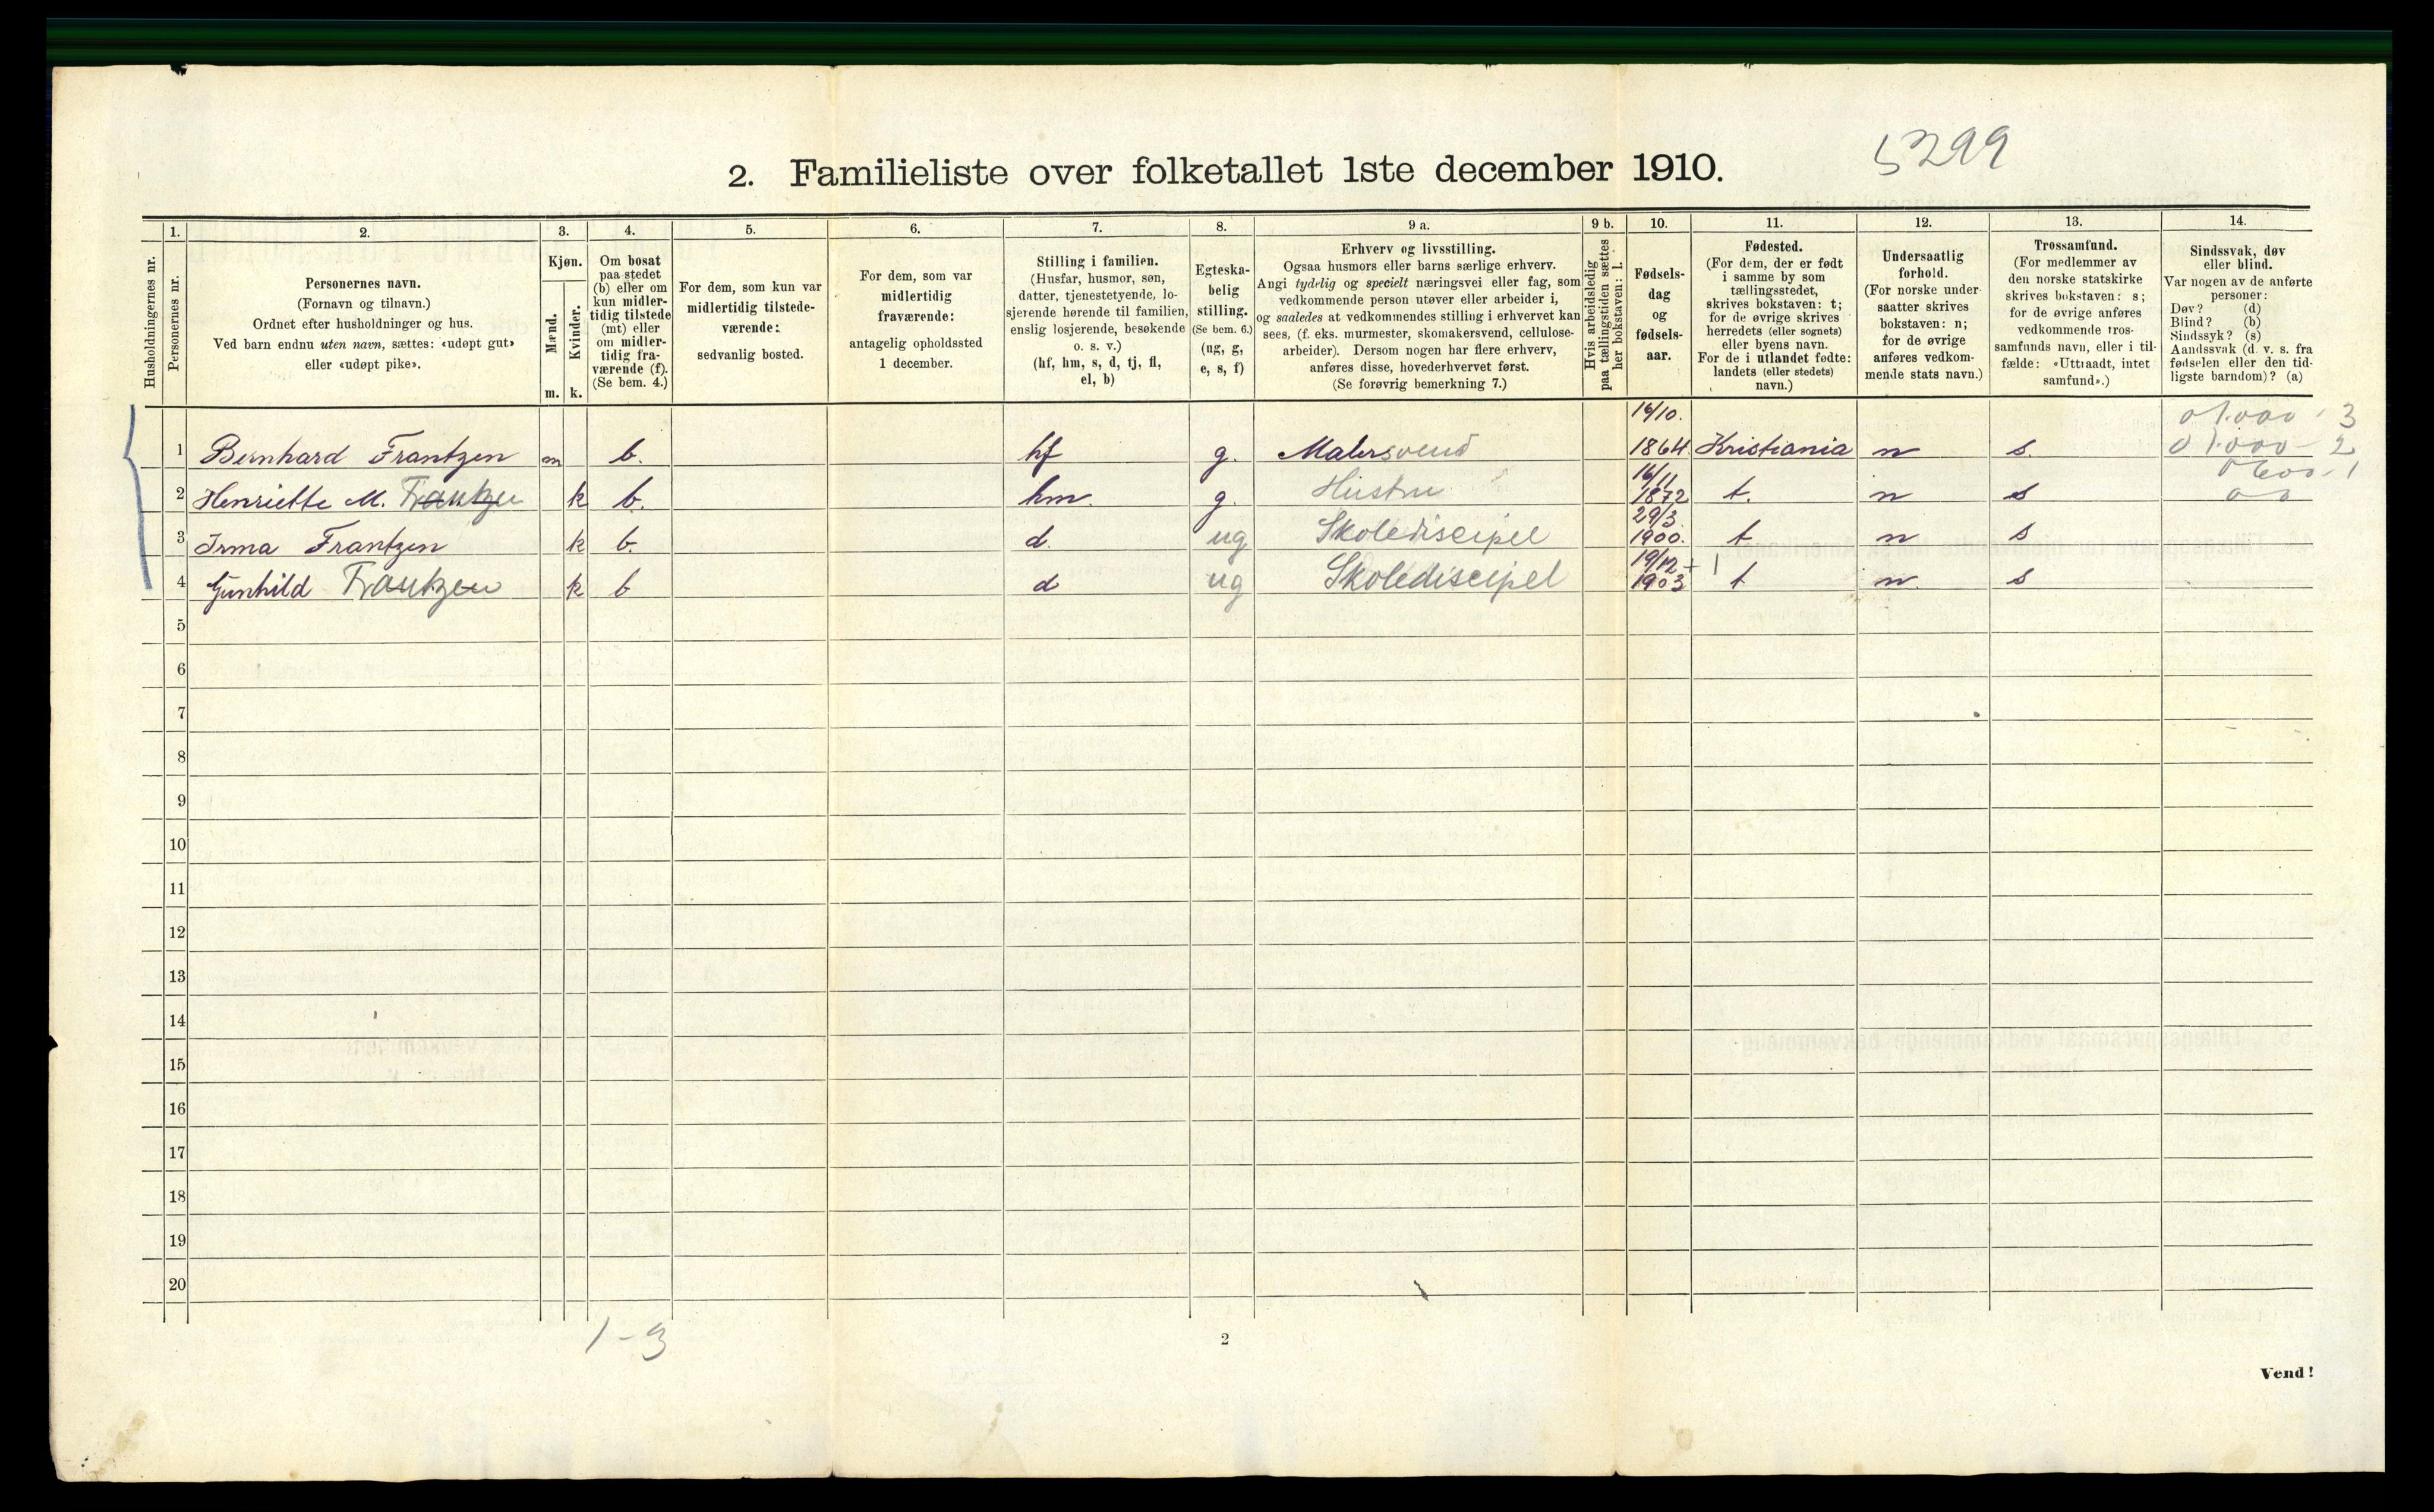 5299
2. Familieliste over folketallet 1ste december 1910.
1. 2. 3. 4. 5. 6. 7. 8. 9 a. 9 b. 10. 11. 12. 13. 14.
Husholdningernes nr.
Personernes nr.
Personernes navn.
(Fornavn og tilnavn.)
Ordnet efter husholdninger og hus.
Ved barn endnu uten navn, sættes: «udøpt gut»
eller «udøpt pike».
Kjøn.
Mænd.
Kvinder.
m. k.
Om bosat
paa stedet
(b) eller om
kun midler-
tidig tilstede
(mt) eller
om midler-
tidig fra-
værende (f).
(Se bem. 4.)
For dem, som kun var
midlertidig tilstede-
værende:
sedvanlig bosted.
For dem, som var
midlertidig
fraværende:
antagelig opholdssted
1 december.
Stilling i familien.
(Husfar, husmor, søn,
datter, tjenestetyende, lo-
sjerende hørende til familien,
enslig losjerende, besøkende
o. s. v.)
(hf, hm, s, d, tj, fl,
el, b)
Egteska-
belig
stilling.
(Se bem. 6.)
(ug, g,
e, s, f)
Erhverv og livsstilling.
Ogsaa husmors eller barns særlige erhverv.
Angi tydelig og specielt næringsvei eller fag, som
vedkommende person utøver eller arbeider i,
og saaledes at vedkommendes stilling i erhvervet kan
sees, (f. eks. murmester, skomakersvend, cellulose-
arbeider). Dersom nogen har flere erhverv,
anføres disse, hovederhvervet først.
(Se forøvrig bemerkning 7.)
Hvis arbeidsledig
paa tællingstiden sættes
her bokstaven: l.
Fødsels-
dag
og
fødsels-
aar.
Fødested.
(For dem, der er født
i samme by som
tællingsstedet,
skrives bokstaven: t;
for de øvrige skrives
herredets (eller sognets)
eller byens navn.
For de i utlandet fødte:
landets (eller stedets)
navn.)
Undersaatlig
forhold.
(For norske under-
saatter skrives
bokstaven: n;
for de øvrige
anføres vedkom-
mende stats navn.)
Trossamfund.
(For medlemmer av
den norske statskirke
skrives bokstaven: s;
for de øvrige anføres
vedkommende tros-
samfunds navn, eller i til-
fælde: «Uttraadt, intet
samfund».)
Sindssvak, døv
eller blind.
Var nogen av de anførte
personer:
Døv? (d)
Blind? (b)
Sindssyk? (s)
Aandssvak (d. v. s. fra
fødselen eller den tid-
ligste barndom)? (a)
1 Bernhard Frantzen m b. hf g. Malersvend 16/10. 1864 Kristiania n s.
2 Henriette M. Frantzen k b. hm. g. Hustru 16/11 1872 t. n s
3 Irma Frantzen k b. d. ug Skolediscipel 29/3. 1900. t n s
4 Gunhild Frantzen k b d ug Skolediscipel 19/12 1903 t n. s
5
6
7
8
9
10
11
12
13
14
15
16
17
18
19
20
1-3
2
Vend!